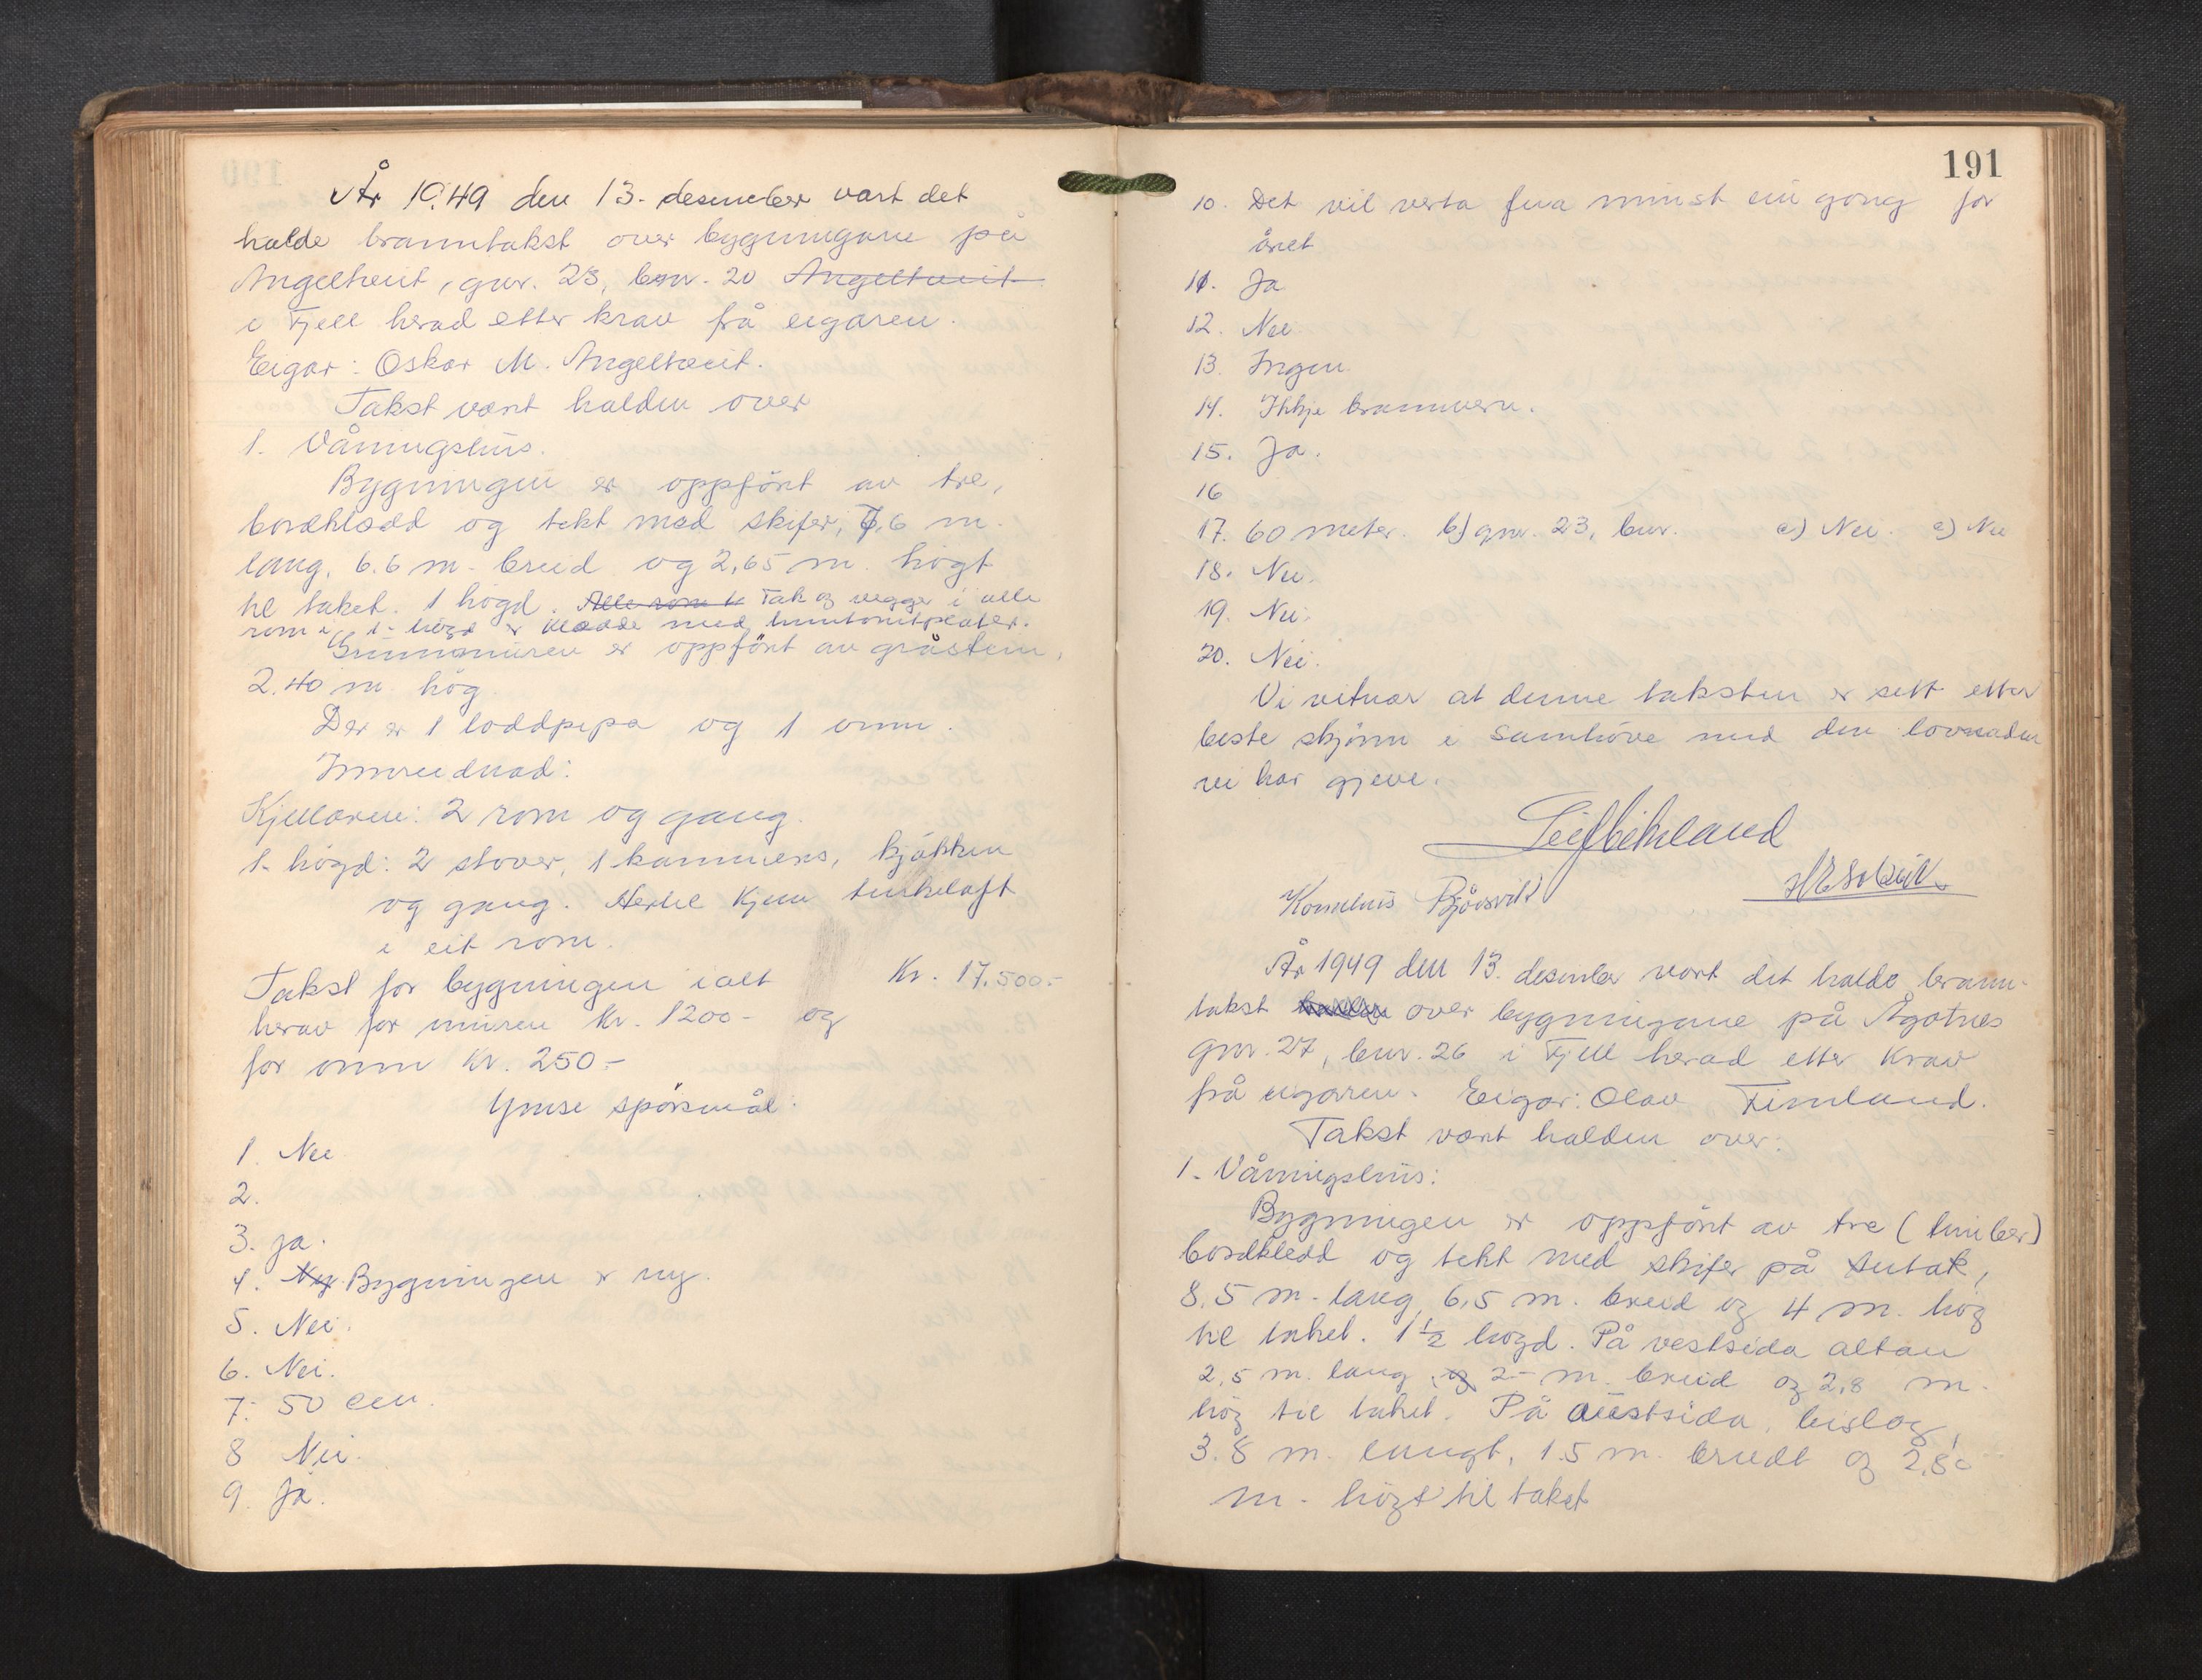 År 1949 den 13. desember vart det
halde branntakst over bygningane på
Angeltveit, gnr. 23, bnr. 20 Angeltveit
i Fjell herad etter krav frå eigaren.
Eigar: Oskar M. Angeltveit.
Takst vart halden over
1. Våningshus.
Bygningen er oppført av tre,
bordkledd og tekt med skifer, 7,6 m.
lang, 6.6 m. breid og 2,65 m. högt
til taket. 1 högd. Alle rom Tak og vegger i alle
rom i 1. högd er kledde med huntonitplater.
Grunnmuren er oppført av gråstein,
2.40 m. hög.
Der er 1 loddpipa og 1 omn.
Innreidnad:
Kjellaren: 2 rom og gang.
1. högd: 2 stover, 1 kammers, kjökken
og gang. Hertil kjem
i eit rom.
Takst for bygningen ialt Kr. 17.500.-
herav for muren Kr. 1200- og
for omn Kr. 250.-
Ymse spörsmål:
1. Nei
2.
3. Ja.
4. Ny Bygningen er ny.
5. Nei.
6. Nei.
7. 50 cm.
8 Nei.
9. Ja.
191
10. Det vil verta feia minst ein gong for
året
11. Ja
12. Nei
13. Ingen
14. Ikkje brannvern.
15. Ja.
16
17. 60 meter. b) gnr. 23, bnr. c) Nei. e) Nei
18. Nei.
19. Nei.
20. Nei.
Vi vitnar at denne taksten er sett etter
beste skjönn i samhöve med den lovnaden
vi har gjeve.
Kornelius
År 1949 den 13. desember vart det halde brann-
takst over bygningane på Ågotnes
gnr. 27, bnr. 26 i Fjell herad etter krav
frå eigaren. Eigar: Olav Fimland.
Takst vart halden over:
1. Våningshus:
Bygningen er oppfört av tre (timber)
bordkledd og tekt med skifer på sutak,
8.5 m. lang, 6,5 m. breid og 4 m. hög
til taket. 1 ½ högd. På vestsida altan
2,5 m. lang og 2- m. breid og 2,8 m.
hög til taket. På austsida bislag,
3.8 m. langt, 1.5 m. breidt og 2,80
m. högt til taket